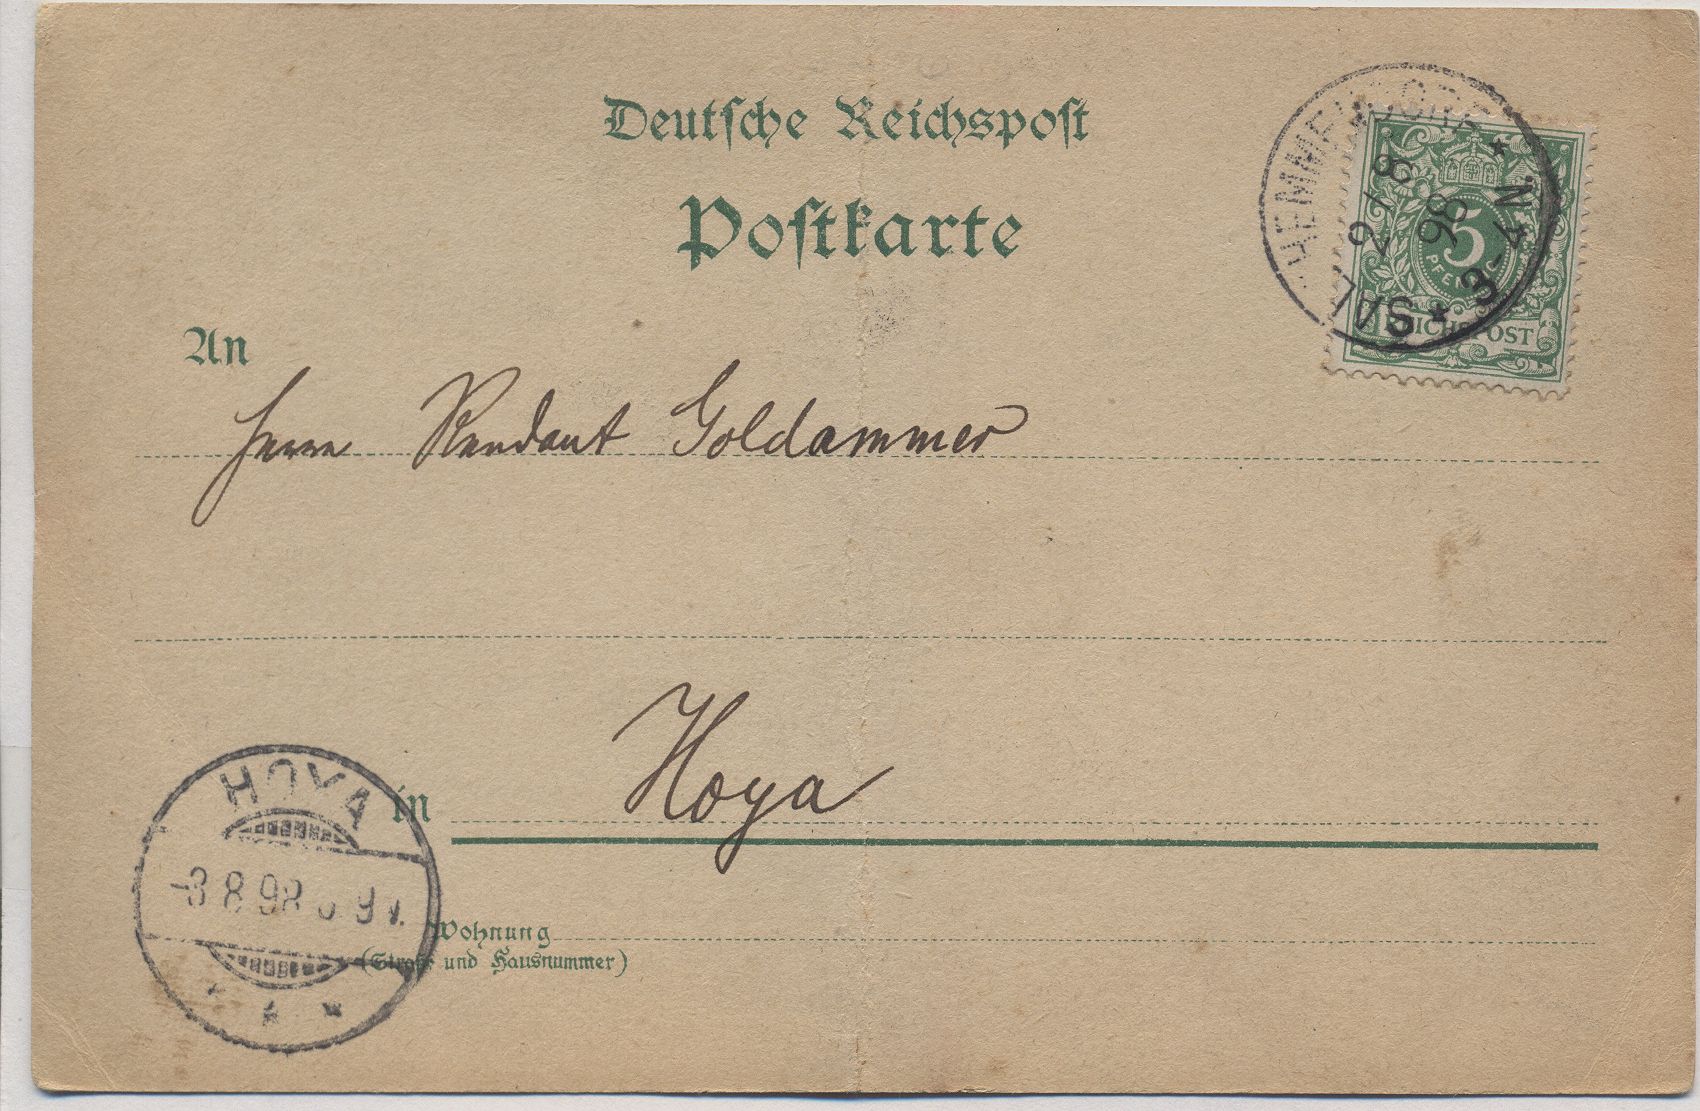 Deutsche Reichspost
Postkarte
SAL. HEMMENDORF
2/8
98
3-4N.
5
PFENNIG
REICHSPOST
An
Herrn Rendant Goldammer
in Hoya
HOYA
-3 8 98
Wohnung
(Straße und Hausnummer)